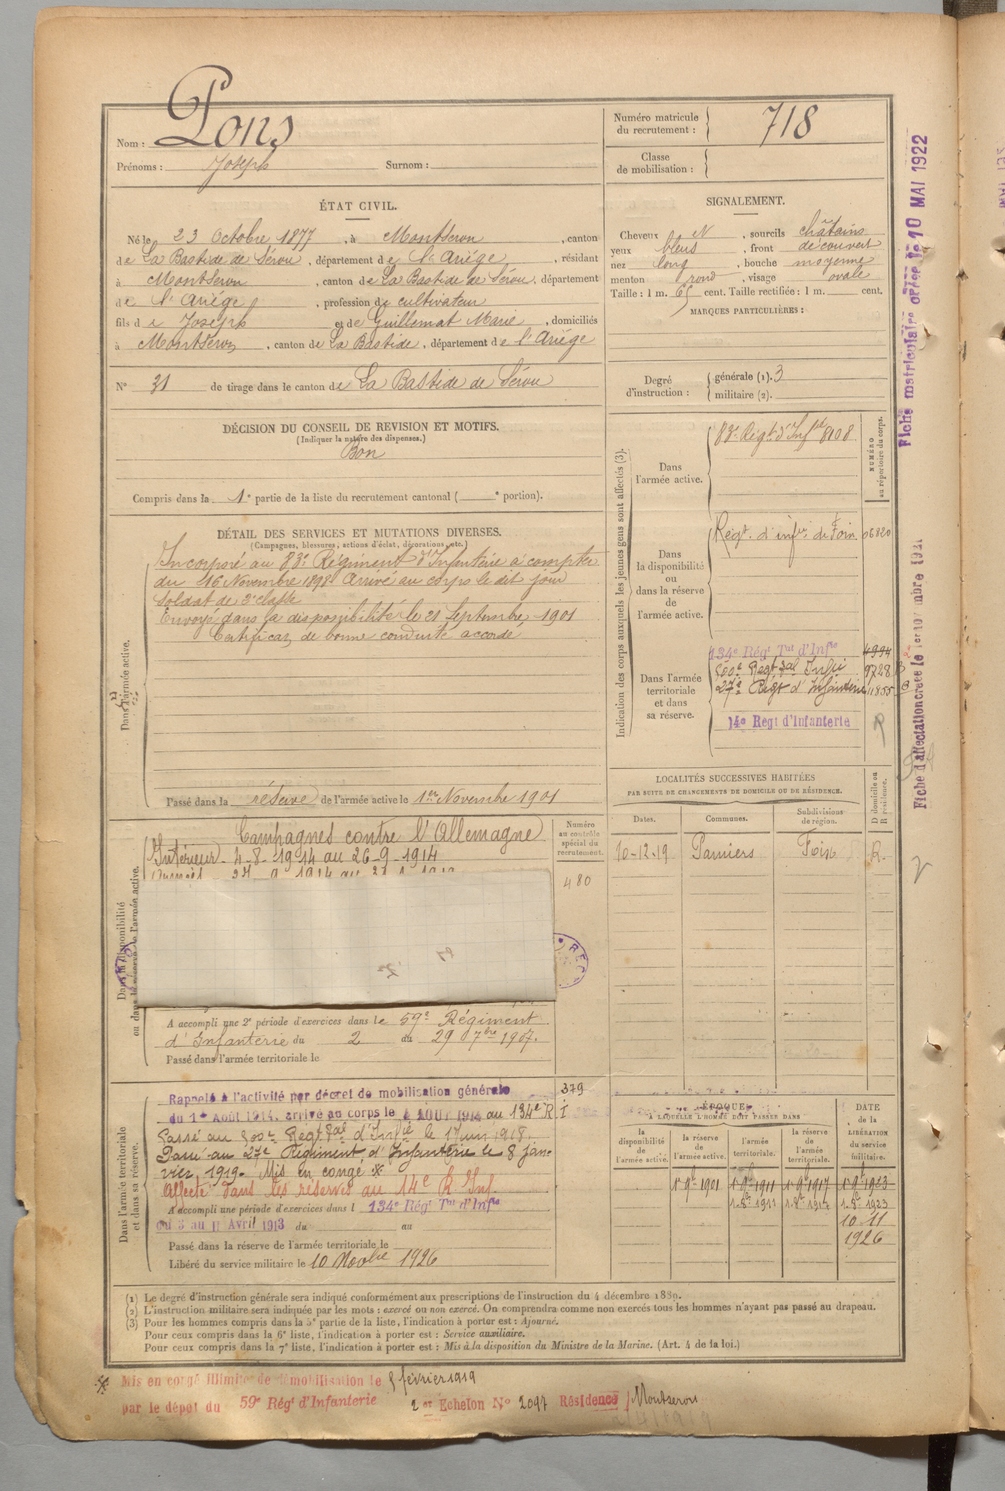 Nom : Pons
Prénoms : Joseph Surnom :
Numéro matricule du recrutement : 718
Classe de mobilisation :
ÉTAT CIVIL.
Né le 23 Octobre 1877, à Montseron, canton
de La Bastide de Sérou, département de l'Ariège, résidant
à Montseron, canton de La Bastide de Sérou, département
de l'Ariège, profession de cultivateur
fils de Joseph et de Guillemat Marie, domiciliés
à Montseron, canton de La Bastide, département de l'Ariège
N° 31 de tirage dans le canton de La Bastide de Sérou
SIGNALEMENT.
Cheveux N, sourcils châtains
yeux bleus, front découvert
nez long, bouche moyenne
menton rond, visage ovale
Taille : 1 m. 65 cent. Taille rectifiée : 1 m. cent.
MARQUES PARTICULIÈRES :
Degré d'instruction : générale (1). 3
militaire (2).
DÉCISION DU CONSEIL DE REVISION ET MOTIFS.
(Indiquer la nature des dispenses.)
Bon
Compris dans la 1e partie de la liste du recrutement cantonal ( e portion).
DÉTAIL DES SERVICES ET MUTATIONS DIVERSES.
(Campagnes, blessures, actions d'éclat, décorations, etc.)
Dans l'armée active.
Incorporé au 83e Régiment d'Infanterie à compter
du 16 Novembre 1898 Arrivé au corps le dit jour
Soldat de 2e classe
Envoyé dans la disponibilité le 21 Septembre 1901
Certificat de bonne conduite accordé
Passé dans la réserve de l'armée active le 1er Novembre 1901
Indication des corps auxquels les jeunes gens sont affectés (3).
NUMÉRO au répertoire du corps.
Dans l'armée active.
83e Régt d'Inf 8108
Dans la disponibilité ou dans la réserve de l'armée active.
Régt d'infie de Foix 06820
Dans l'armée territoriale et dans sa réserve.
134e Régt Tal d'Infie 4994
500e Régt Tal Infie 9728
27e Régt d'Infanterie 11855
14e Régt d'Infanterie R
LOCALITÉS SUCCESSIVES HABITÉES
PAR SUITE DE CHANGEMENTS DE DOMICILE OU DE RÉSIDENCE.
Dates. Communes. Subdivisions de région. D domicile ou R résidence.
10-12-19 Pamiers Foix R.
Dans la disponibilité ou dans la réserve de l'armée active.
Numéro au contrôle spécial du recrutement.
480
Campagnes contre l'Allemagne
Intérieur 4-8-1914 au 26-9-1914
A accompli une 2e période d'exercices dans le 59e Régiment
d'Infanterie du 2 au 29 7bre 1907.
Passé dans l'armée territoriale le
Dans l'armée territoriale et dans sa réserve.
379
Rappelé à l'activité par décret de mobilisation générale
du 1er Août 1914, arrivé au corps le 4 AOUT 1914 au 134e R.I
Passé au 500e Régt Tal d'Infie le 17 juin 1918.
Passé au 27e Régiment d'Infanterie le 8 jan-
vier 1919. Mis en congé *
Affecté dans les réserves au 14e R Inf
A accompli une période d'exercices dans l 134e Régt Tal d'Infie
du 3 au 11 Avril 1913 du au
Passé dans la réserve de l'armée territoriale le
Libéré du service militaire le 10 Novbre 1926
ÉPOQUE
A LAQUELLE L'HOMME DOIT PASSER DANS
la disponibilité de l'armée active. la réserve de l'armée active. l'armée territoriale. la réserve de l'armée territoriale.
DATE de la LIBÉRATION du service militaire.
1 9bre 1901 1 9bre 1911 1 9bre 1917 1 9bre 1923
1-8bre 1911 1-8bre 1917 1-8bre 1923
10-11
1926
(1) Le degré d'instruction générale sera indiqué conformément aux prescriptions de l'instruction du 4 décembre 1889.
(2) L'instruction militaire sera indiquée par les mots : exercé ou non exercé. On comprendra comme non exercés tous les hommes n'ayant pas passé au drapeau.
(3) Pour les hommes compris dans la 5e partie de la liste, l'indication à porter est : Ajourné.
Pour ceux compris dans la 6e liste, l'indication à porter est : Service auxiliaire.
Pour ceux compris dans la 7e liste, l'indication à porter est : Mis à la disposition du Ministre de la Marine. (Art. 4 de la loi.)
* Mis en congé illimité de démobilisation le 5 février 1919
par le dépôt du 59e Régt d'Infanterie 2er Echelon N° 2097 Résidence Montseron
Fiche matriculaire créée le 10 MAI 1922
Fiche d'affectation créée le 1er novembre 1921